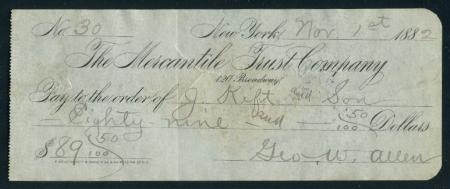 No. 30 New York, Nov. 1st 1882
The Mercantile Trust Company
120 Broadway
Pay to the order of J. Rift and Son
Eighty nine and 50/100 Dollars
$89 50/100 Geo. W. Allen